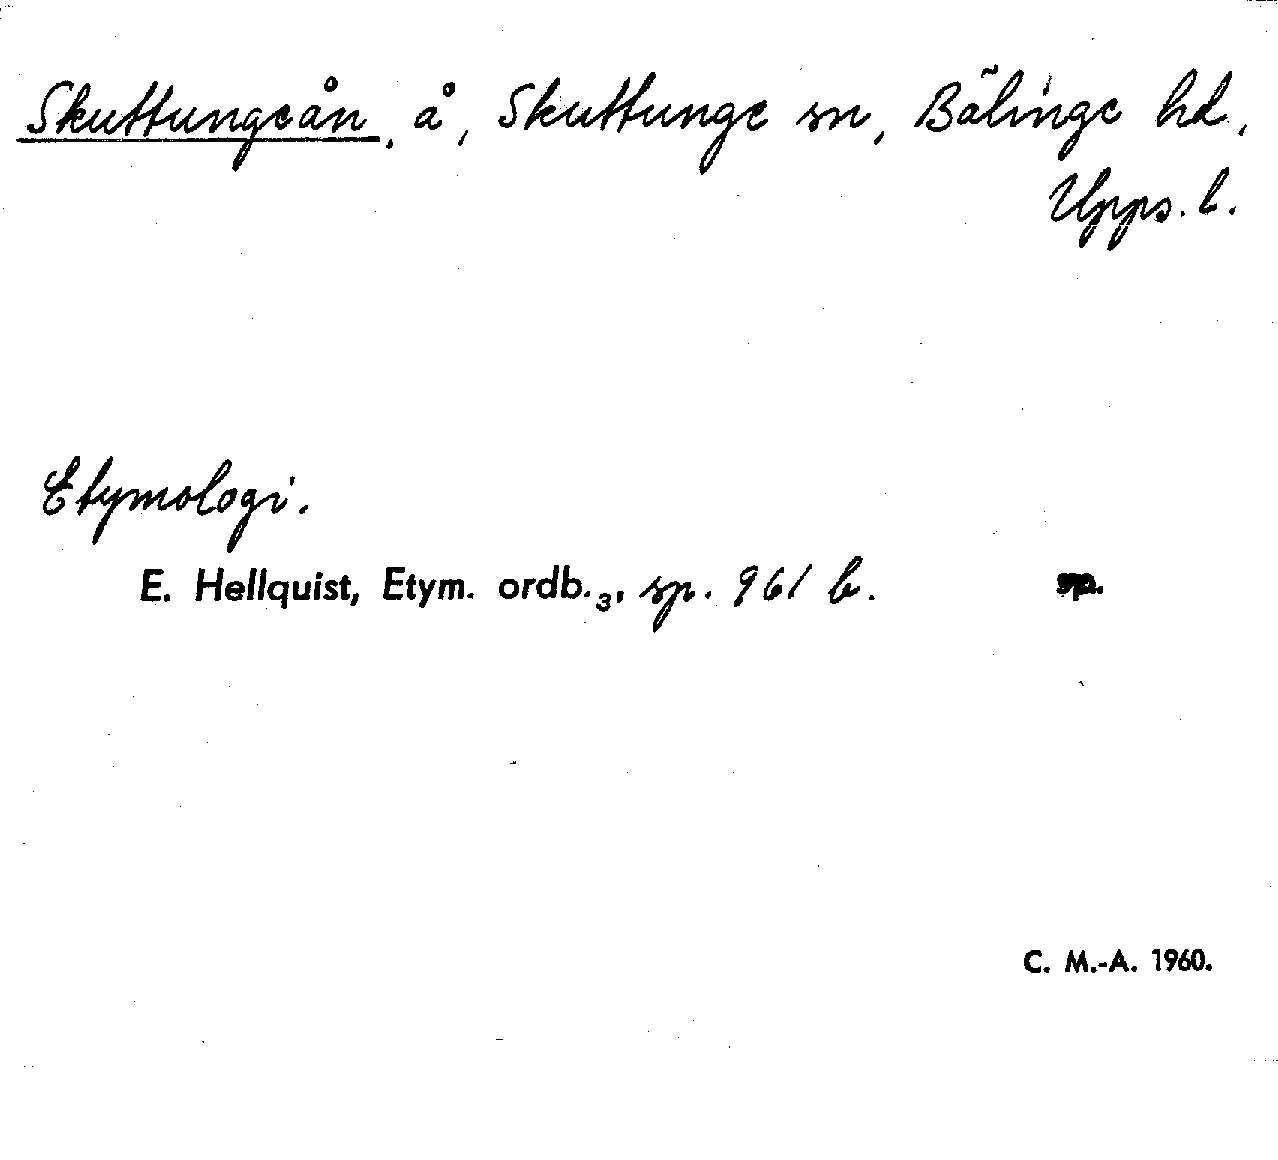 Skuttungeån, å, Skuttunge sn, Bälinge hd,
Upps. l.
Etymologi.
E. Hellquist, Etym. ordb.₃, sp. 961 b. sp.
C. M.-A. 1960.